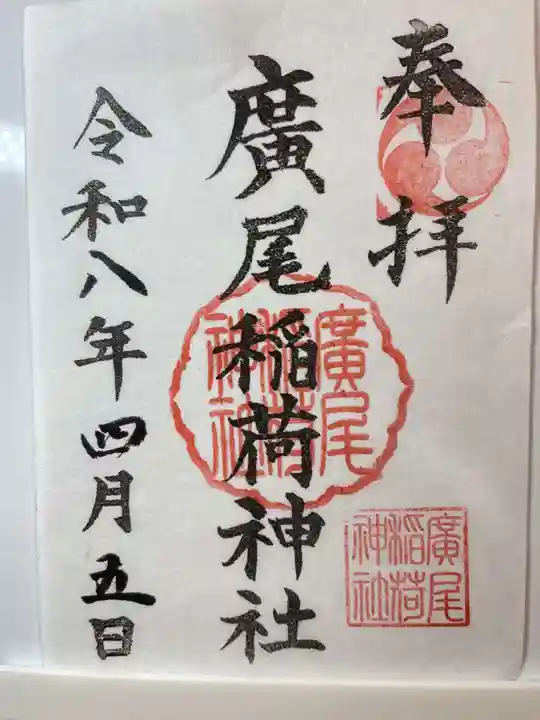 奉拝
廣尾稲荷神社
令和八年四月五日
廣尾稲荷神社
廣尾稲荷神社